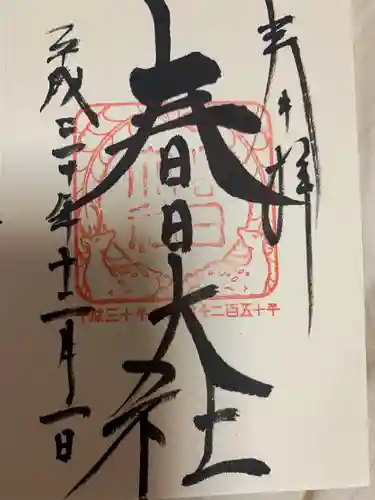 奉拝
春日大社
平成三十年十二月一日
平成三十年
二百五十年